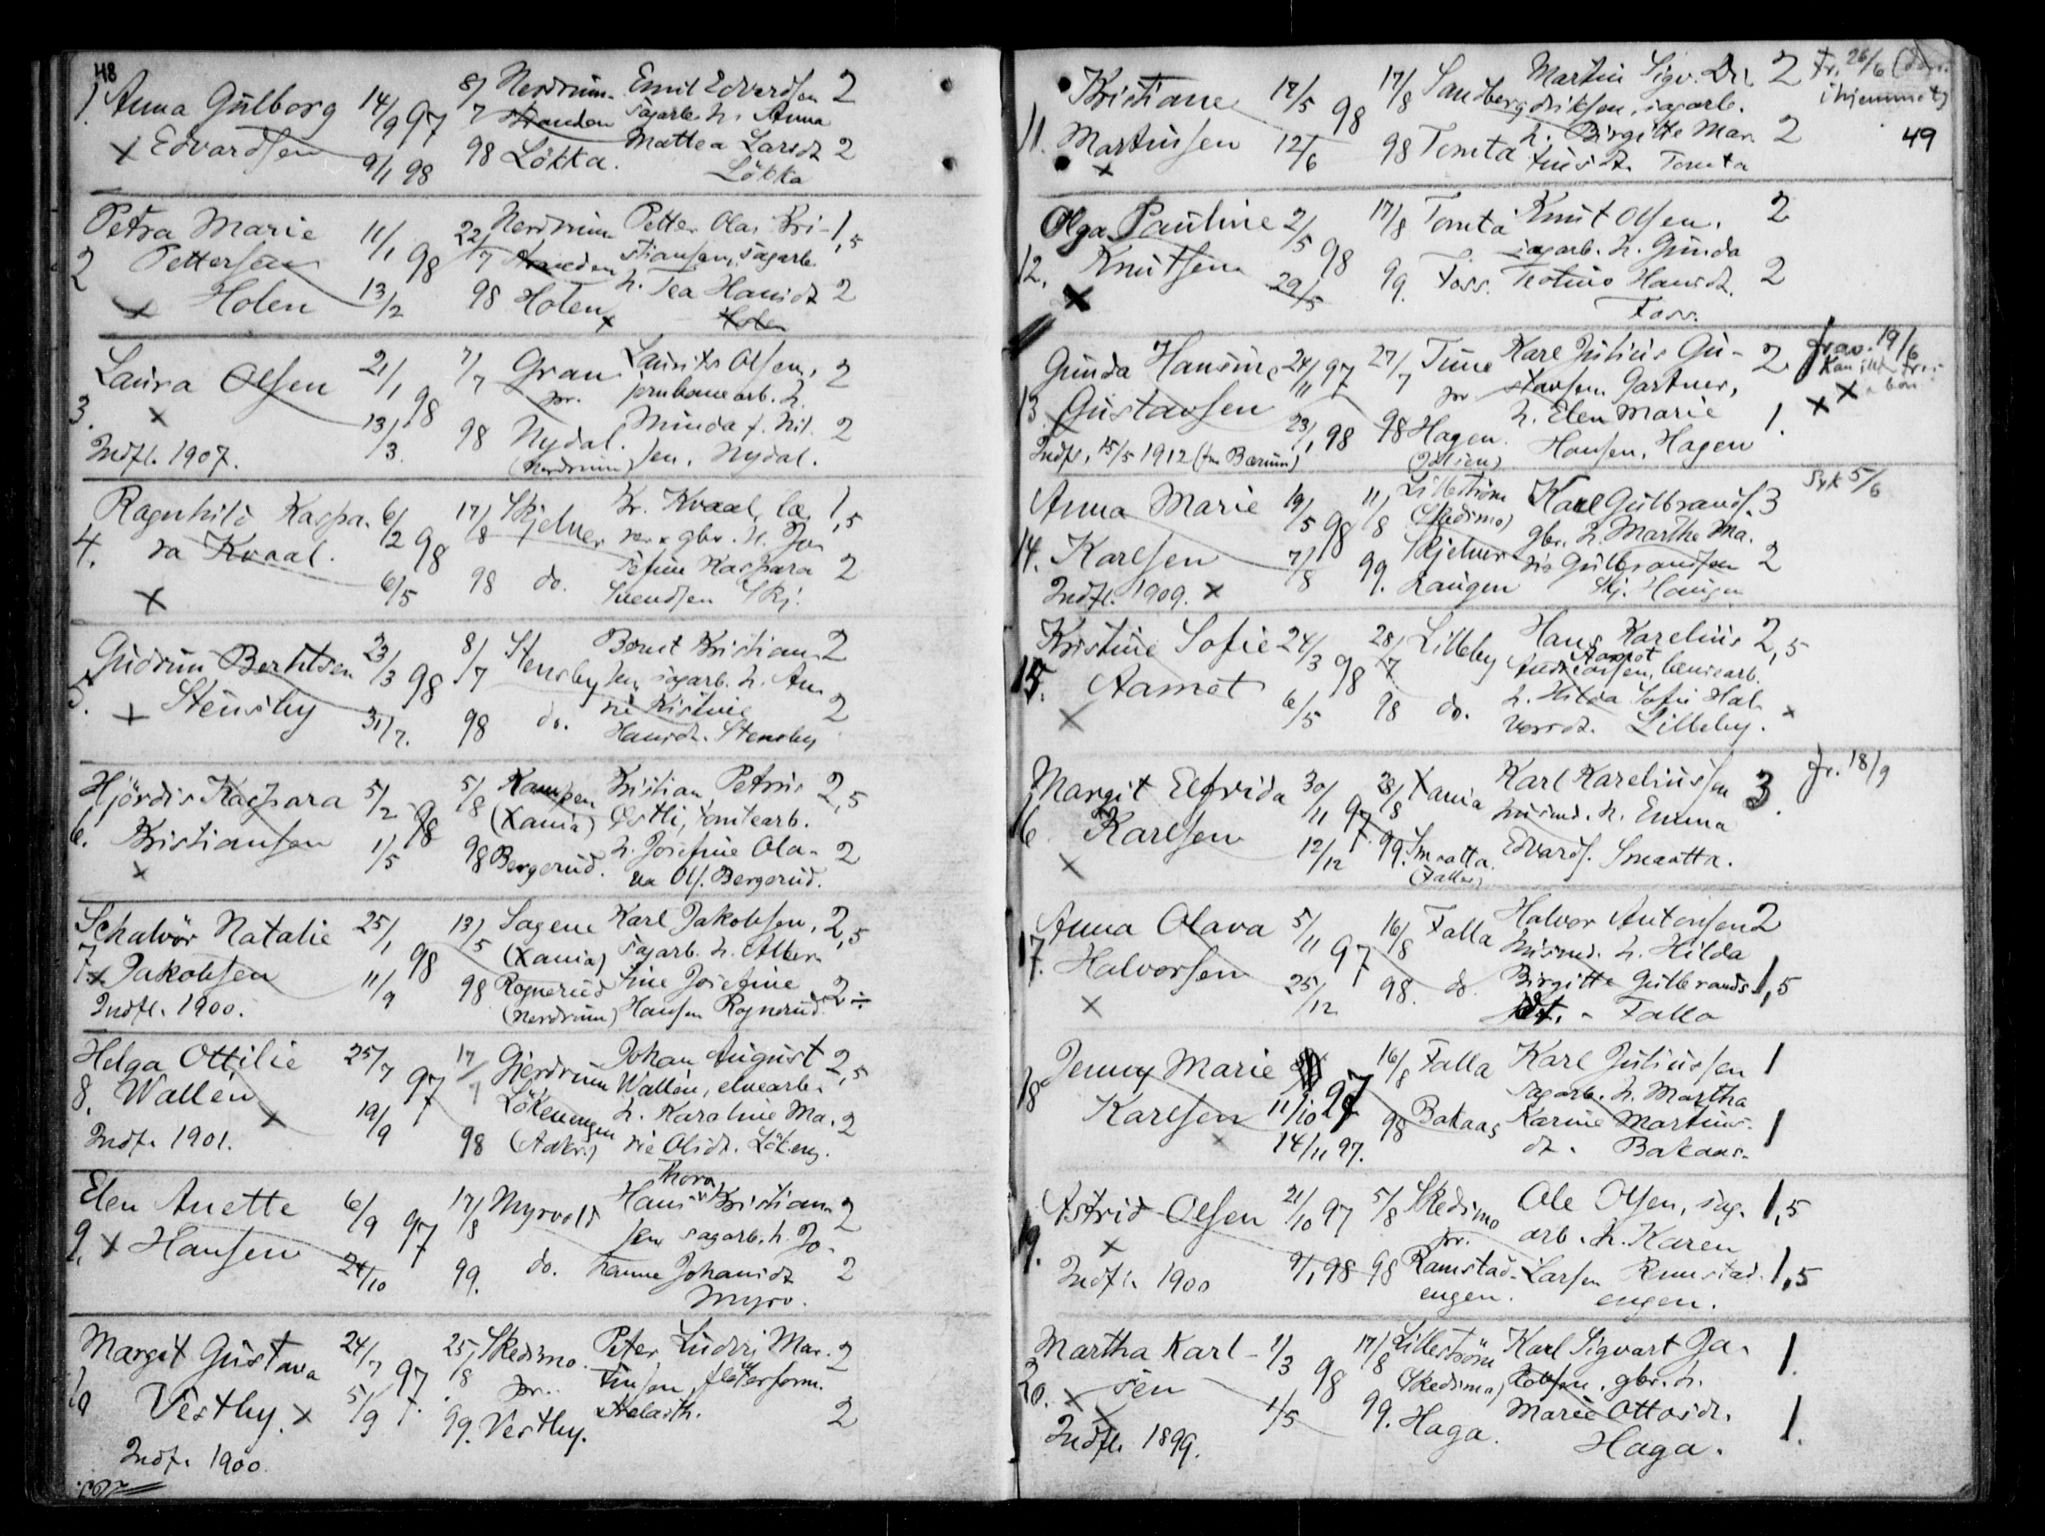 48
1. Anna Gulborg 14/9 97 8/7 Nordrum- Emil Edvardsen 2
stranden sagarb. h. Anna
x Edvardsen 9/1 98 98 Løkka. Mattea Larsdt. 2
Løkka
Petra Marie 11/1 98 22/7 Nordrum Petter Olai Kri- 1,5
2 Pettersen stiansen, sagarb.
x Holen 13/2 98 Holen x h. Tea Hansdt. 2
Holen
Laura Olsen 21/1 98 7/7 Gran Laurits Olsen, 2
3. x pr. jernbanearb. h.
13/3 98 Nydal. Minda f. Nil- 2
Indfl. 1907. (Nordrum) sen, Nydal.
Ragnhild Kaspa- 6/2 98 17/8 Skjetner Kr. Kvaal, læ- 1,5
4. ra Kvaal. rer & gbr. h. Jo-
6/5 98 do. sefine Kaspara 2
x Svendsen Skj.
Gudrun Berntsen 23/3 98 8/7 Stensby Bernt Kristian- 2
5. sen, sagarb. h. An-
x Stensby 31/7. 98 do. ne Kristine 2
Hansdt. Stensby
Hjørdis Kaspara 5/2 98 5/8 Kampen Kristian Petrus 2,5
6. (Xania) Østli, tomtearb.
Kristiansen 1/5 98 Bergerud. h. Josefine Ola- 2
x va Ols. Bergerud.
Schalvør Natalie 25/1 98 13/5 Sagene Karl Jakobsen, 2,5
7. (Xania) sagarb. h. Alber-
x Jakobsen 11/9 98 Rognerud tine Josefine 2 ÷
Indfl. 1900. (Nordrum) Hansen Rognerud.
Helga Ottilie 25/7 97 17/7 Gjerdrum Johan August 2,5
8. Wallén Wallén, elvearb.
x 19/9 98 Løkenengen h. Karoline Ma- 2
Indf. 1901. (Aakr.) rie Olsdt. Løkeng.
Thora
Elen Anette 6/9 97 17/8 Myrvold Hans Kristian- 2
sen sagarb. h. Jo-
9. x Hansen 24/10 99. do. hanne Johansdt. 2
Myrv.
Margit Gustava 24/7 97. 25/8 Skedsmo Peter Ludvi Mar- 2
10 pr. tinsen, fløterform.
Vestby. x 5/9 99. Vestby. 2
Indf. 1900.
Kristiane 12/5 98 17/8 Sandberg Martin Sigv. Di- 2 fr. 26/6
driksen, sagarb. i hjemmet)
11. Martinsen 12/6 98 Tomta h. Birgitte Mar- 2 49
x tinsdt. Tomta
Olga Pauline 2/5 98 17/8 Tomta Knut Olsen, 2
12. Knutsen sagarb. h. Gunda
x 29/5 99. Foss. Teoline Hansdt. 2
Foss.
Gunda Hansine 24/11 97 27/7 Tune Karl Julius Gu- 2 frav. 19/6
pr stavsen Gartner,
13. x Gustavsen 23/1 98 98 Hagen. h. Elen Marie 1. x x
Indfl. 15/5 1912 (fra Bærum) Hansen, Hagen
Anna Marie 19/5 98 11/8 Lillestrøm Karl Gulbrands. 3 Syk 5/6
(Skedsmo) gbr. h. Marthe Ma-
14. Karlsen 7/8 99. Skjetner rie Gulbrandsen 2
Indfl. 1909. x Haugen Skj. Haugen
Kristine Sofie 24/3 98 28/7 Lilleby Hans Karelius 2,5
Aamot
15. Aamot Andreassen, lænsearb.
x 6/5 98 do. h. Hilda Sofie Hal- x
vorsdt. Lilleby.
Margit Elfrida 30/11 97 28/8 Xania Karl Kareliussen 3. fr. 18/9
husmd. h. Emma
16 Karlsen 12/12 99. Smaatta. Edvards. Smaatta.
x (Falla)
Anna Olava 5/11 97 16/8 Falla Halvor Antonsen 2
husmd. h. Hilda
17. Halvorsen 25/12 98. do. Birgitte Gulbrands- 1,5
x dt. - Falla
Jenny Marie 97 16/8 Falla Karl Juliussen 1
sagarb. h. Martha
18 Karlsen 11/10 97 98 Bakaas Karine Martins- 1
x 14/11 97. dt. Bakaas.
Astrid Olsen 21/10 97 5/8 Skedsmo Ole Olsen, sag- 1,5
19. x pr. arb. h. Karen
Indfl. 1900 9/1 98 98 Ramstad- Larsen Ramstad- 1,5
engen. engen.
Martha Karl- 1/3 98 17/8 Lillestrøm Karl Sigvart Ja- 1.
20. x sen (Skedsmo) kobsen, gbr. h.
x 1/5 99. Haga. Marie Ottosdt. 1.
Indfl. 1899. Haga.